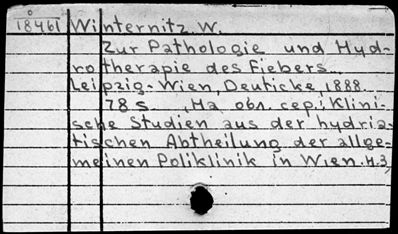 18461 Winternitz W.
Zur Pathologie und Hyd-
rotherapie des Fiebers.
Leipzig-Wien, Deuticke, 1888.
78 s. (На обл. сер.: Klini-
sche Studien aus der hydria-
tischen Abtheilung der allge-
meinen Poliklinik in Wien. H.3)